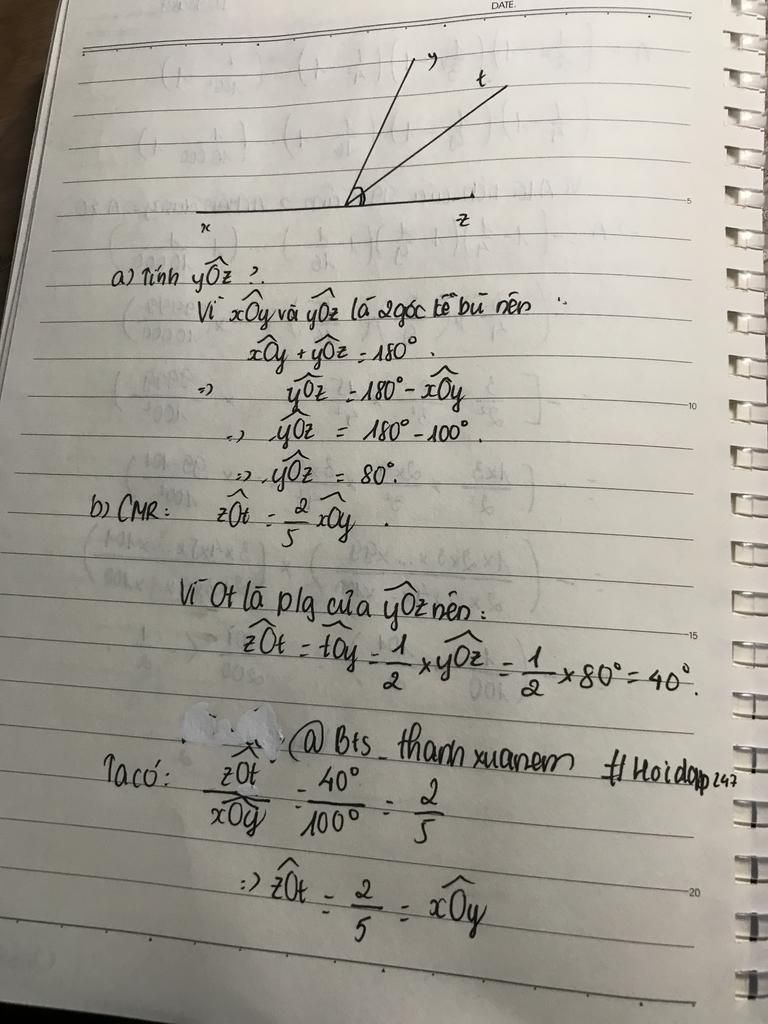 DATE.
y
t
x
z
5
a) Tính yÔz ?.
Vì xÔy và yÔz là 2 góc kề bù nên :
xÔy + yÔz = 180°.
=> yÔz = 180° - xÔy
=> yÔz = 180° - 100°.
=> yÔz = 80°.
10
b) CMR: zÔt = 2/5 xÔy.
Vì Ot là plg của yÔz nên:
15
zÔt = tÔy = 1/2 × yÔz = 1/2 × 80° = 40°.
@Bts_thanhxuanem #Hoidap247
Ta có: zÔt/xÔy = 40°/100° = 2/5
=> zÔt = 2/5 = xÔy
20